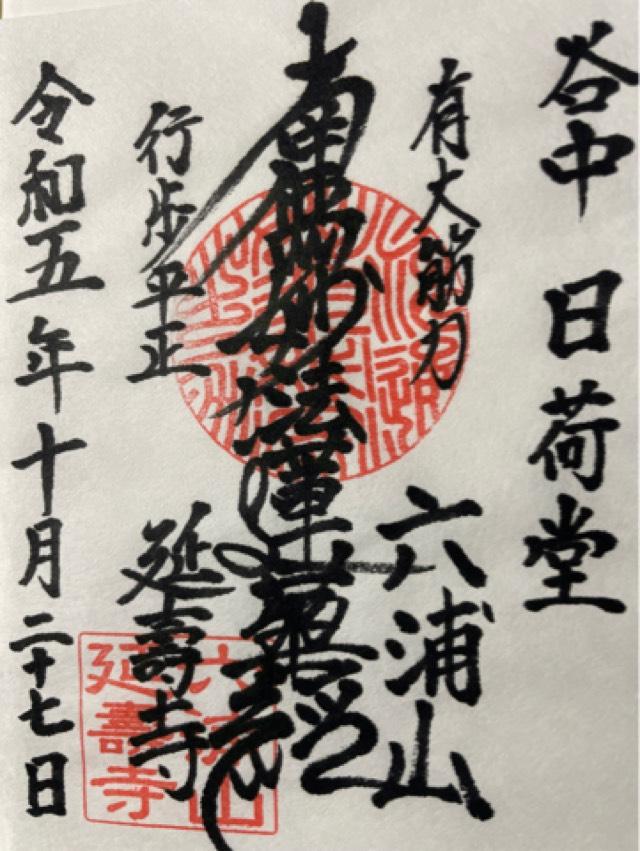 谷中 日荷堂
有大筋力
六浦山
南無妙法蓮華經
行歩平正
延壽寺
令和五年十月二十七日
六浦山
延壽寺